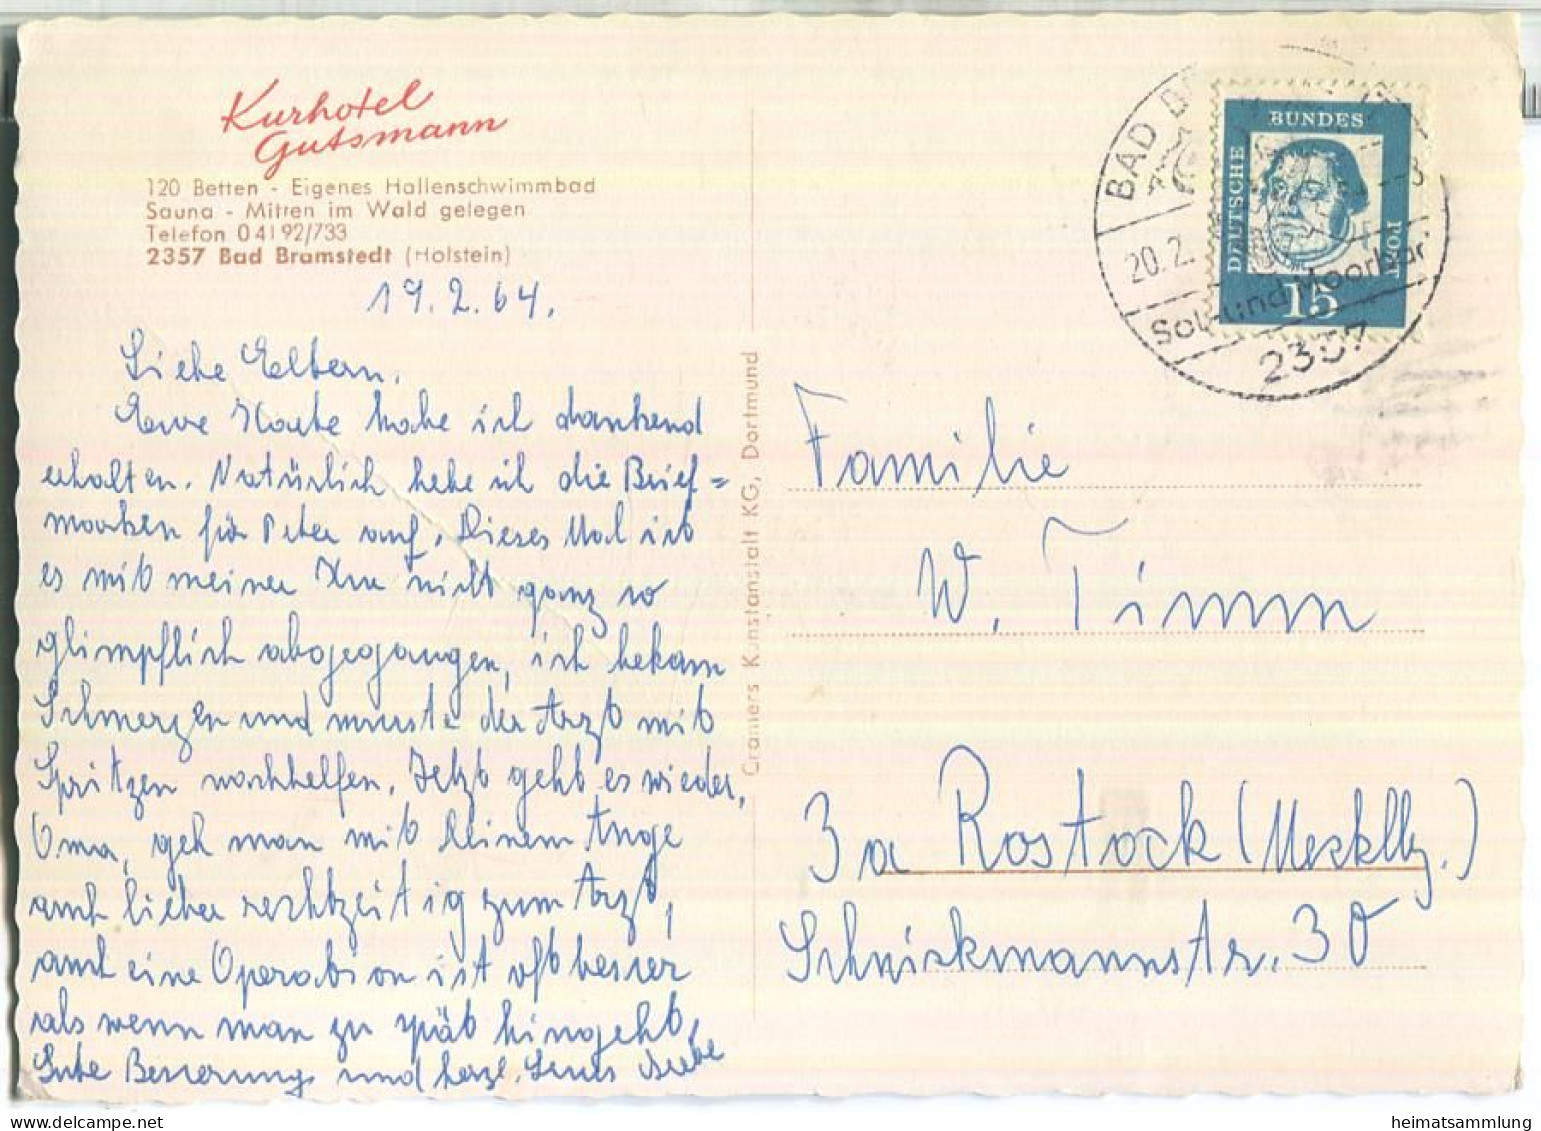 Kurhotel
Gutsmann
120 Betten - Eigenes Hallenschwimmbad
Sauna - Mitten im Wald gelegen
Telefon 0 41 92/733
2357 Bad Bramstedt (Holstein)
19.2.64.
Liebe Eltern,
Eure Karte habe ich dankend
erhalten. Natürlich hebe ich die Brief=
marken für Peter auf. Dieses Mal ist
es mit meiner Kur nicht ganz so
glimpflich abgegangen, ich bekam
Schmerzen und musste der Arzt mit
Spritzen nachhelfen. Jetzt geht es wieder,
Oma, geh man mit Deinem Auge
auch lieber rechtzeitig zum Arzt,
auch eine Operation ist oft besser
als wenn man zu spät hingeht,
Gute Besserung und herzl. Gruss
Cramers Kunstanstalt KG, Dortmund
BAD BR
20.2.
Sol- und Moorbad
2357
DEUTSCHE
BUNDES
POST
15
Familie
W. Timm
3a Rostock (Mecklbg.)
Schnickmannstr. 30
heimatsammlung